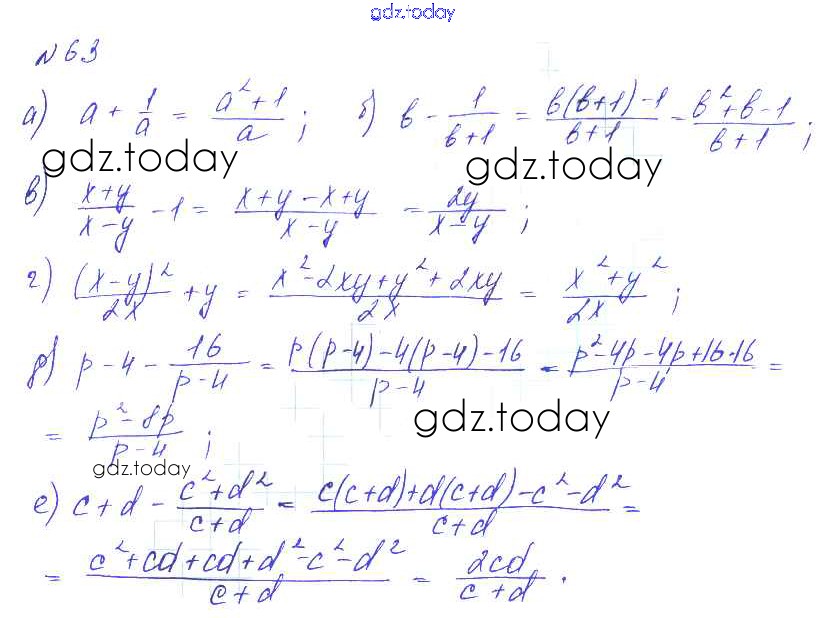 gdz.today
№ 63
а) a + 1/a = (a² + 1)/a ; б) b - 1/(b+1) = (b(b+1) - 1)/(b+1) = (b² + b - 1)/(b+1) ;
gdz.today gdz.today
в) (x+y)/(x-y) - 1 = (x+y - x+y)/(x-y) = 2y/(x-y) ;
г) (x-y)²/2x + y = (x² - 2xy + y² + 2xy)/2x = (x² + y²)/2x ;
д) p - 4 - 16/(p-4) = (p(p-4) - 4(p-4) - 16)/(p-4) = (p² - 4p - 4p + 16 - 16)/(p-4) =
gdz.today
= (p² - 8p)/(p-4) ;
gdz.today
е) c + d - (c² + d²)/(c+d) = (c(c+d) + d(c+d) - c² - d²)/(c+d) =
= (c² + cd + cd + d² - c² - d²)/(c+d) = 2cd/(c+d) .